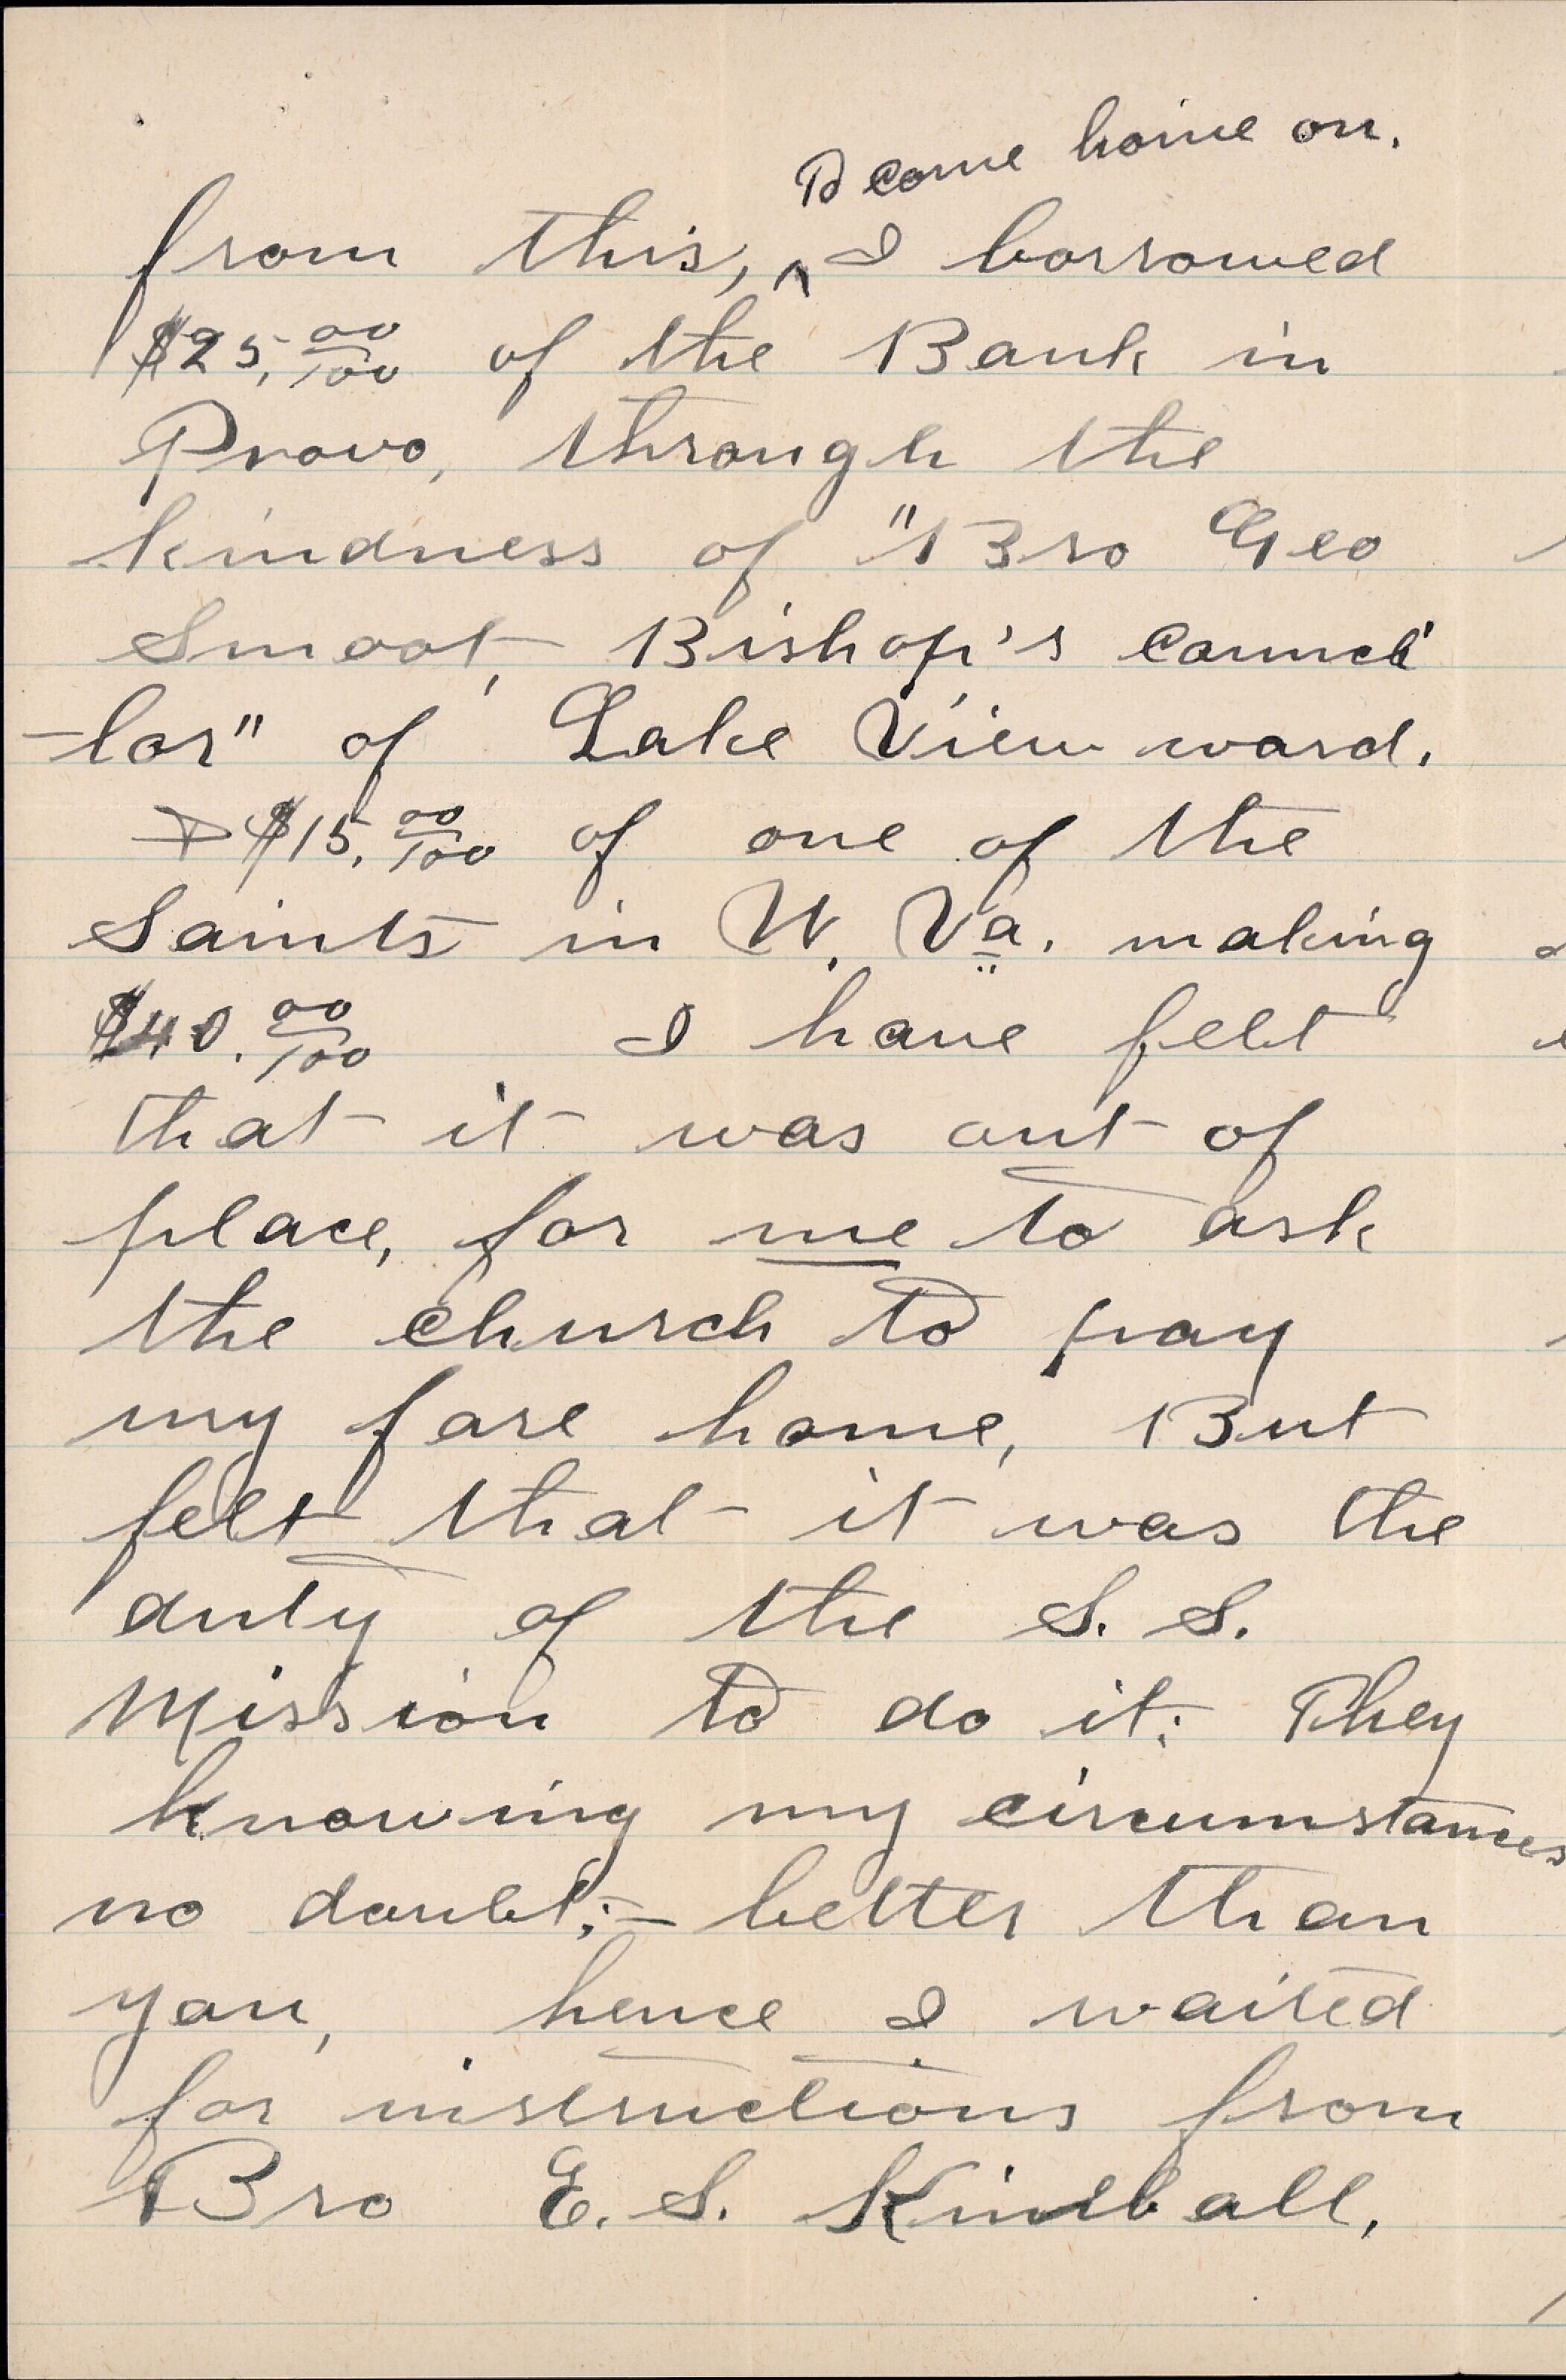 To come home on.
from this, ^ I borrowed
$25.00/100 of the Bank in
Provo, through the
kindness of "Bro Geo
Smoot, Bishop's councel
-lor" of Lake View ward.
+ $15.00/100 of one of the
Saints in W. Va. making
$40.00/100 I have felt
that it was out of
place, for me to ask
the church to pay
my fare home, But
felt that it was the
duty of the S. S.
Mission to do it; They
knowing my circumstances
no doubt;- better than
you, hence I waited
for instructions from
Bro E. S. Kimball,